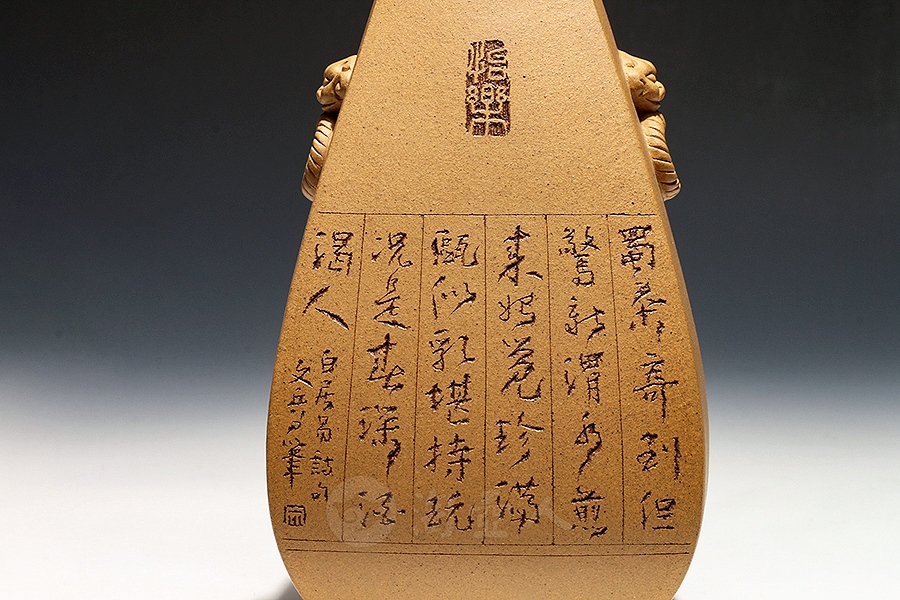 怡樂
蜀茶寄到但
驚新渭水煎
来始覺珍滿
甌似乳堪持玩
况是春深酒
渴人
白居易詩句
文兵刀筆